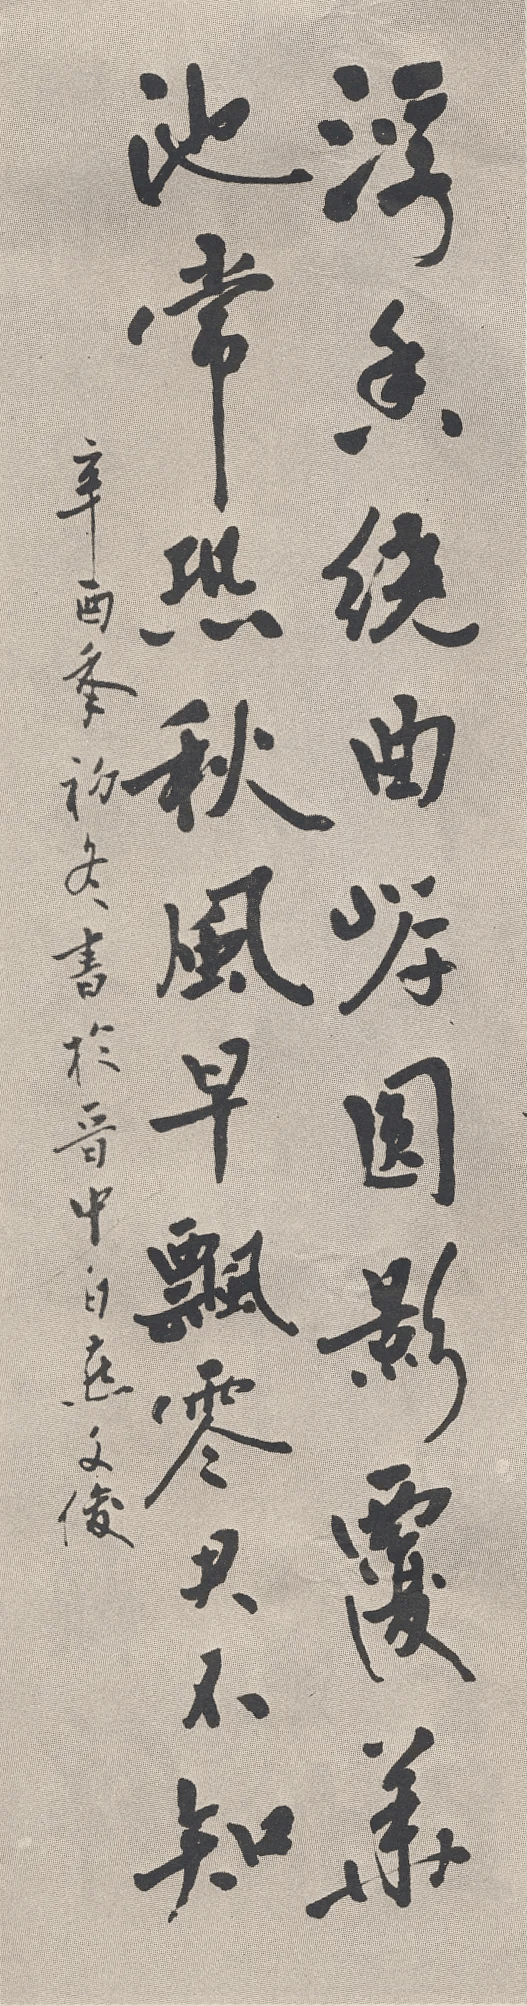 浮香绕曲岸圆影覆華
池常恐秋風早飄零君不知
辛酉季初冬書於晋中白燕文俊